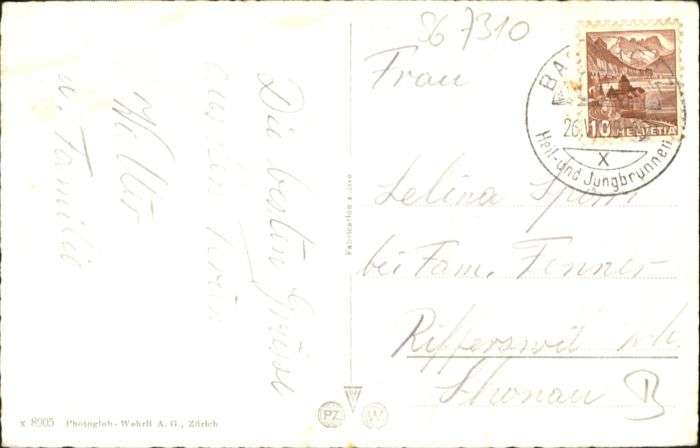 56 7310
Frau
Selina
bei Fam. Fenner
Rifferswil
B
Die besten Grüsse
aus den Ferien
u. Familie
BA
26.
Heil- und Jungbrunnen
10 HELVETIA
Fabrication
PZ
x 8905 Photoglob-Wehrli A. G., Zürich